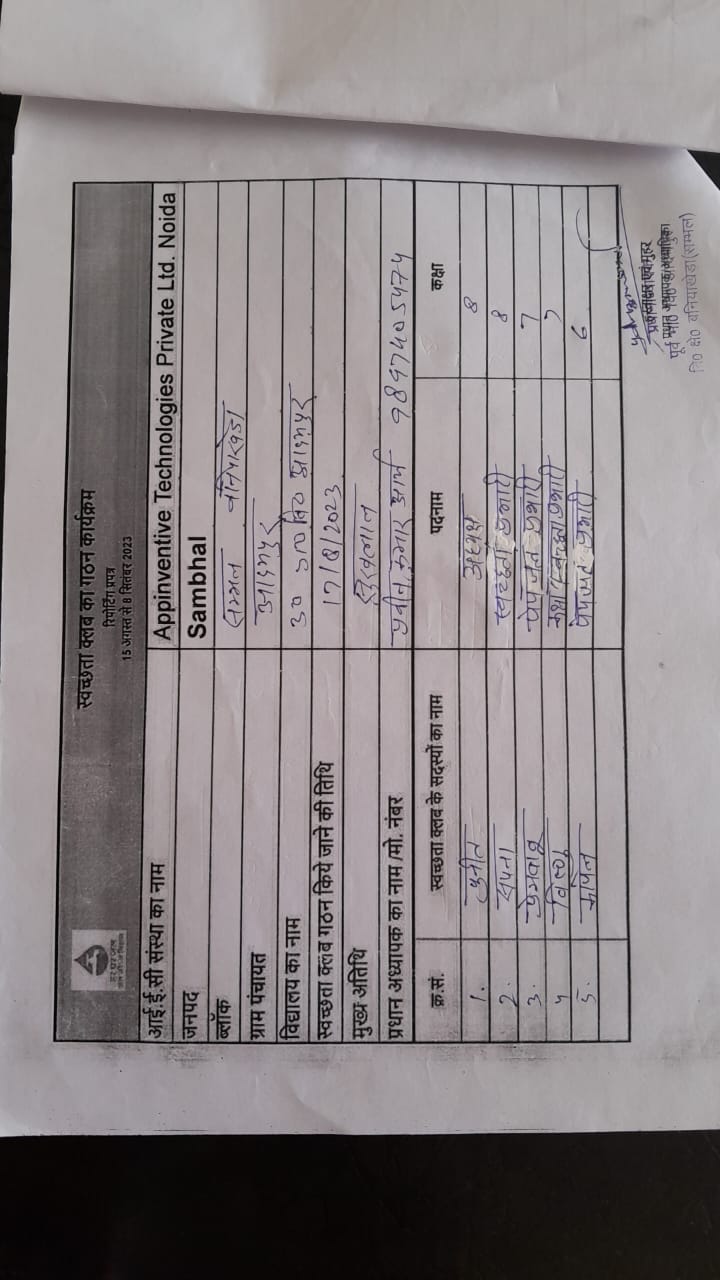 हर घर जल
जल जीवन मिशन
स्वच्छता क्लब का गठन कार्यक्रम
रिपोर्टिंग प्रपत्र
15 अगस्त से 8 सितंबर 2023
आई.ई.सी संस्था का नाम Appinventive Technologies Private Ltd. Noida
जनपद Sambhal
ब्लॉक सम्भल वनियाखेडा
ग्राम पंचायत आदमपुर
विद्यालय का नाम उ० प्रा० वि० आदमपुर
स्वच्छता क्लब गठन किये जाने की तिथि 17/8/2023
मुख्य अतिथि
प्रधान अध्यापक का नाम /मो. नंबर प्रवीन कुमार आर्य 9897405474
क्र.सं. स्वच्छता क्लब के सदस्यों का नाम पदनाम कक्षा
1. पुनीत अध्यक्ष 8
2. सपना स्वच्छता प्रभारी 8
3. प्रेमबाबू पेयजल प्रभारी 7
4 विष्णु कक्षा स्वच्छता प्रभारी 7
5. कपिल पेयजल प्रभारी 6
पूर्व मा०
नि० क्षे० बनियाखेडा (सम्भल)